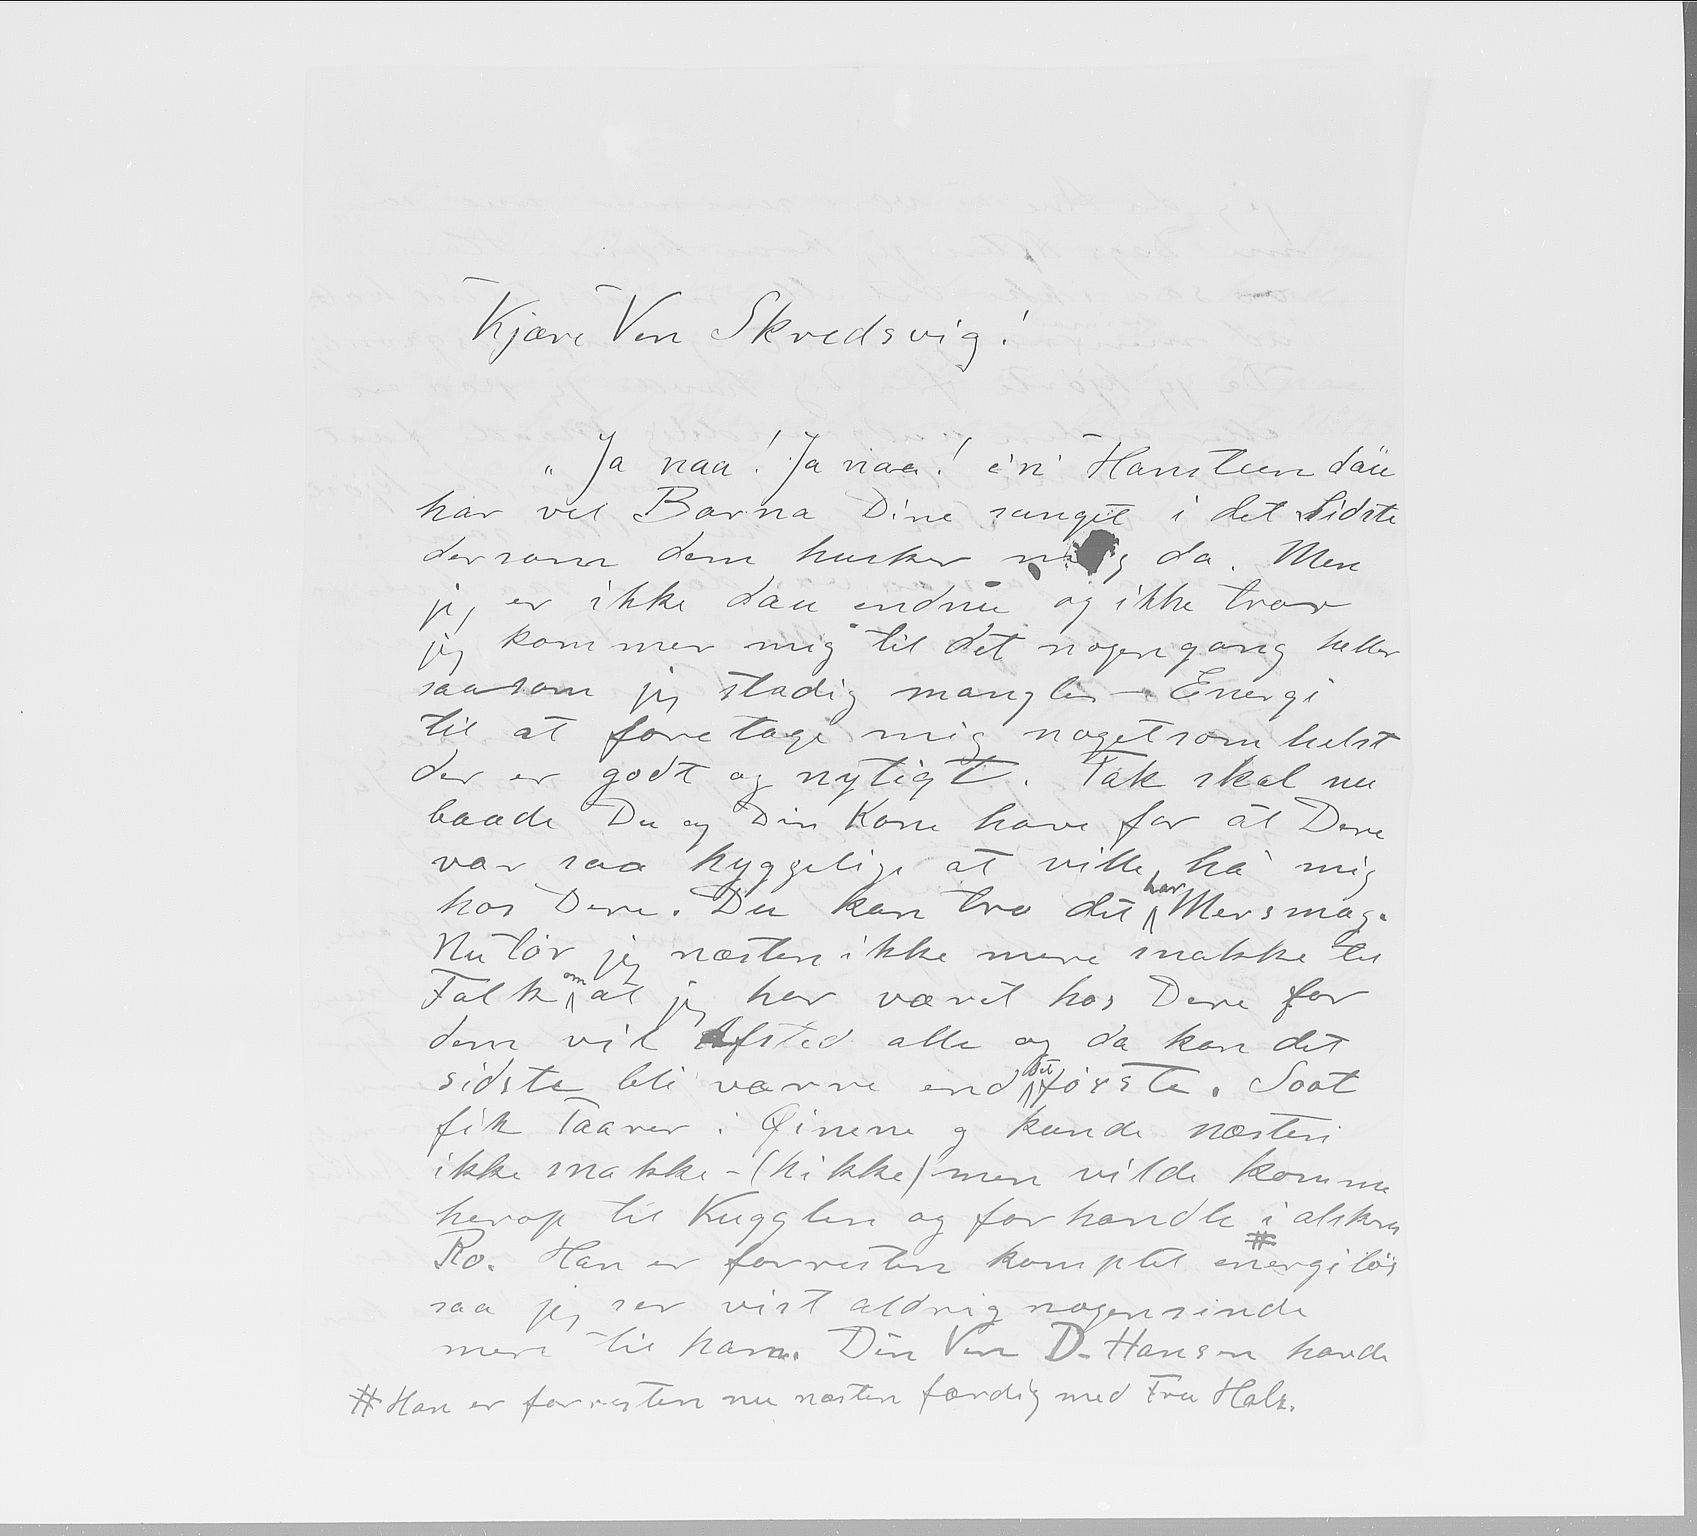 Kjære Ven Skredsvig!
"Ja naa! Ja naa! e'n Hansteen däu
har vel Barna Dine sunget i det sidste
dersom dem husker meg da. Men
jeg er ikke dau endnu og ikke tror
jeg kommer mig til det nogengang heller
saasom jeg stadig mangler Energi
til at foretage mig nogetsomhelst
der er godt og nytigt. Tak skal nu
baade Du og Din Kone have for at Dere
var saa hyggelige at ville ha mig
hos Dere. Du kan tro det har Mersmag.
Nu tør jeg næsten ikke mere snakke til
Folk om at jeg har været hos Dere for
dem vil Afsted alle og da kan det
sidste bli værre end det første. Soot
fik Taarer i Øinene og kunde næsten
ikke snakke - (hikke) men vilde komme
herop til Kugglen og forhandle i alskens
Ro. Han er forresten komplet energiløs #
saa jeg ser vist aldrig nogensinde
mere til ham. Din Ven D. Hansen havde
# Han er forresten nu næsten færdig med Fru Hals.